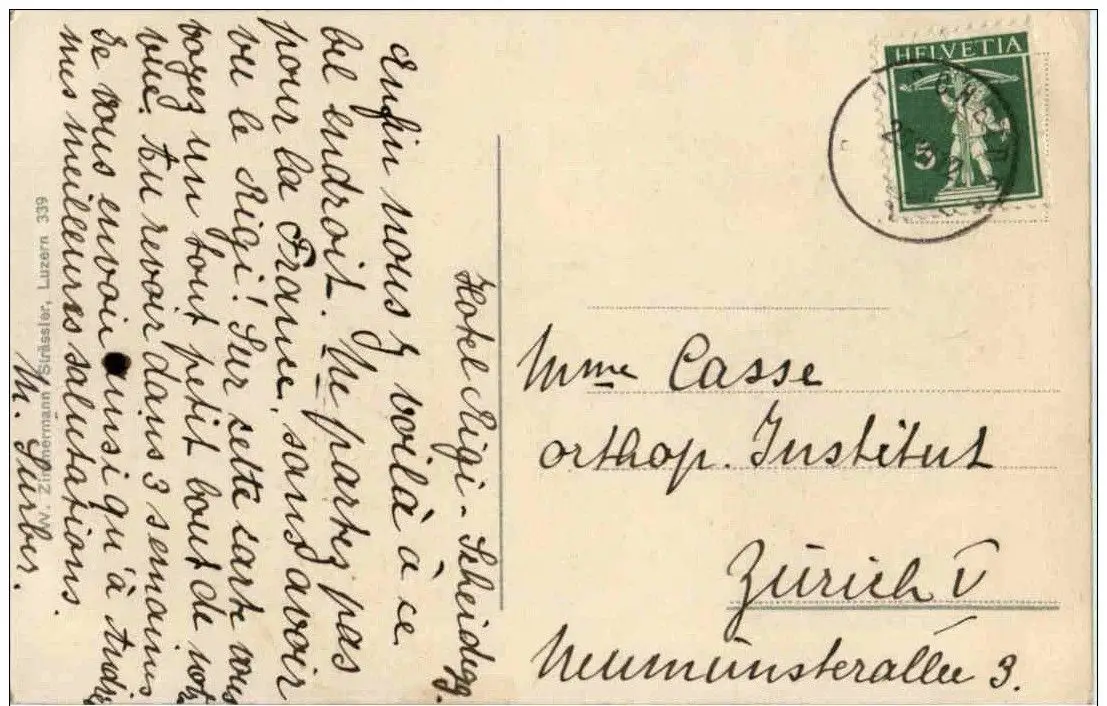 Hotel Rigi-Scheidegg.
Enfin nous y voilà à ce
bel endroit. Ne partez pas
pour la France, sans avoir
vu le Rigi! Sur cette carte vous
voyez un tout petit bout de votre
vue. Au revoir dans 3 semaines
Je vous envoie ainsi qu'à
mes meilleures salutations.
M. Surber.
W. Zimmermann Strässler, Luzern 339
HELVETIA
5
Mme Casse
orthop. Institut
Zürich V
Neumünsterallee 3.